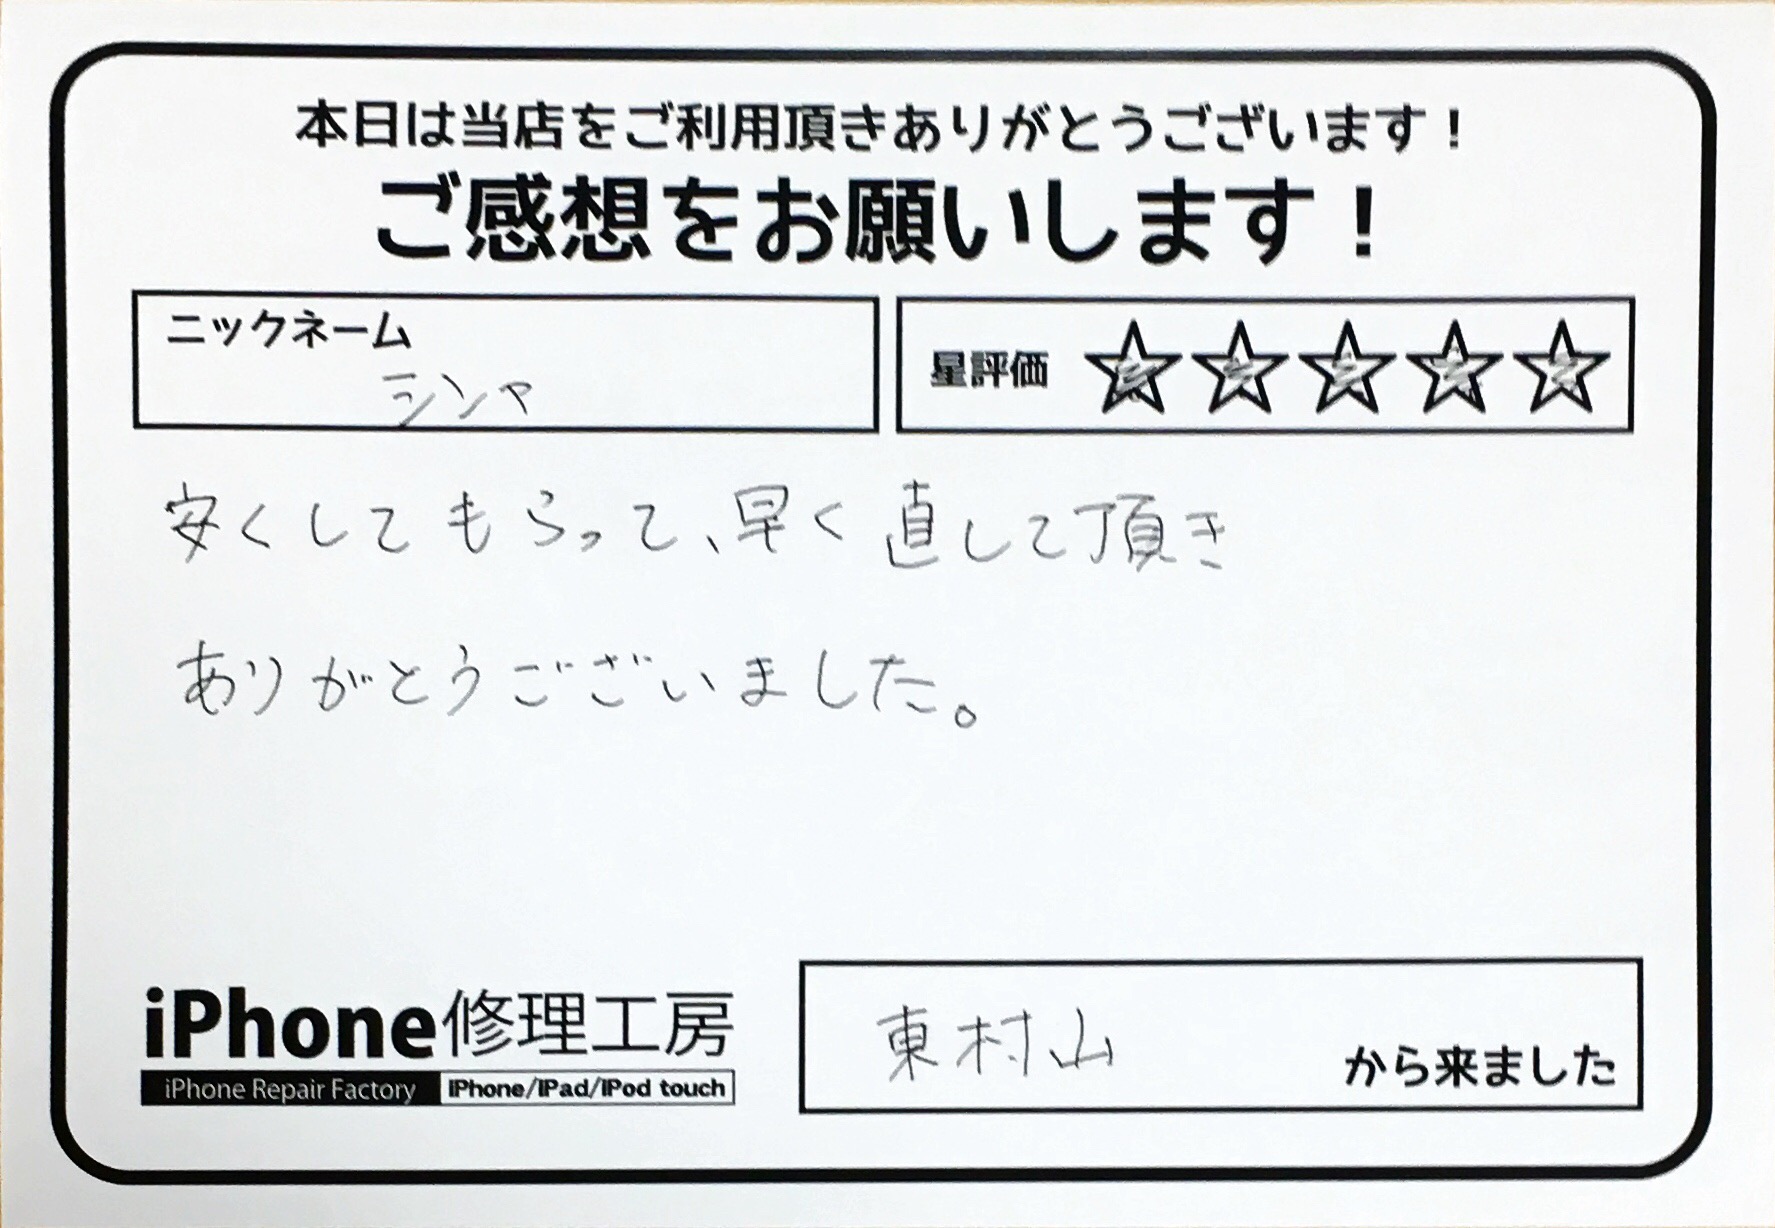 本日は当店をご利用頂きありがとうございます!
ご感想をお願いします!
ニックネーム
シンヤ
星評価 ☆☆☆☆☆
安くしてもらって、早く直して頂き
ありがとうございました。
iPhone修理工房
iPhone Repair Factory iPhone/iPad/iPod touch
東村山 から来ました